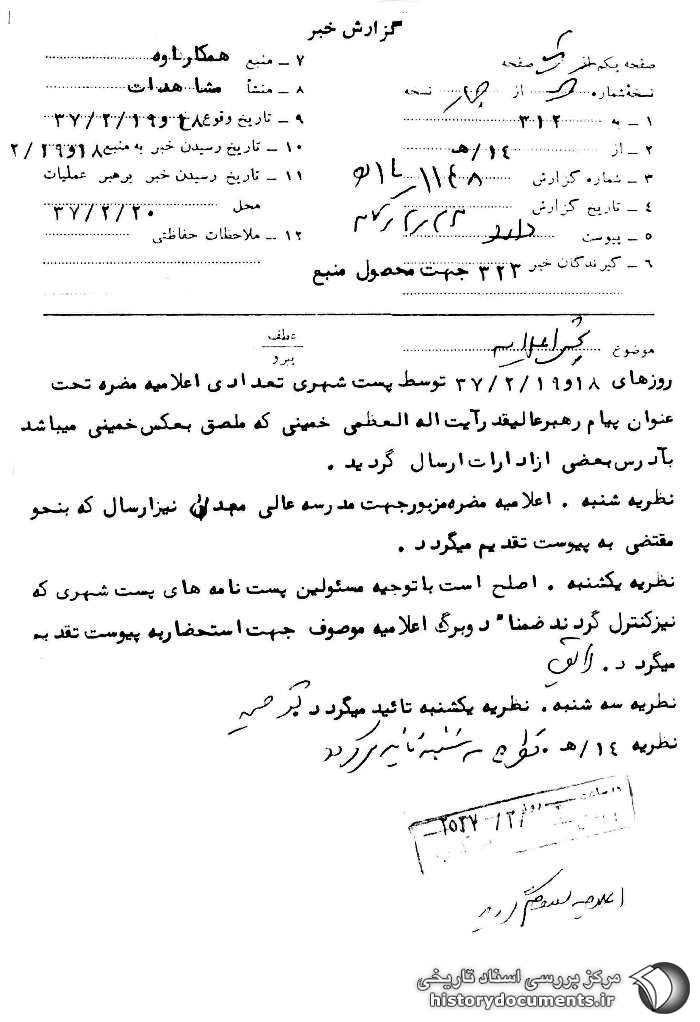 گزارش خبر
صفحه یکم از یک صفحه
نسخه شماره از چهار نسخه
۱ – به ۳۱۲
۲ – از ۱۴/هـ
۳ – شماره گزارش
۴ – تاریخ گزارش
۵ – پیوست دارد
۶ – گیرندگان خبر ۳۲۳ جهت محصول منبع
۷ – منبع همکار ناوه
۸ – منشأ مشاهدات
۹ – تاریخ وقوع ۱۸و۳۷/۲/۱۹
۱۰ – تاریخ رسیدن خبر به منبع ۱۸و۲/۱۹
۱۱ – تاریخ رسیدن خبر برهبر عملیات
محل ۳۷/۲/۲۰
۱۲ – ملاحظات حفاظتی
موضوع پخش اعلامیه
عطف
پیرو
روزهای ۱۸و۳۷/۲/۱۹ توسط پست شهری تعدادی اعلامیه مضره تحت
عنوان پیام رهبرعالیقدرآیت اله العظمی خمینی که ملصق بعکس خمینی میباشد
بآدرس بعضی ازادارات ارسال گردید .
نظریه شنبه . اعلامیه مضره مزبورجهت مدرسه عالی نیزارسال که بنحو
مقتضی به پیوست تقدیم میگردد .
نظریه یکشنبه . اصلح است باتوجیه مسئولین پست نامه های پست شهری که
نیزکنترل گردند ضمنا" دوبرگ اعلامیه موصوف جهت استحضاربه پیوست تقدیم
میگردد . واثق
نطریه سه شنبه . نظریه یکشنبه تائید میگردد
نظریه ۱۴/هـ . نظریه سه شنبه تأیید میگردد
۲۵۳۷/۲/
مرکز بررسی اسناد تاریخی
historydocuments.ir